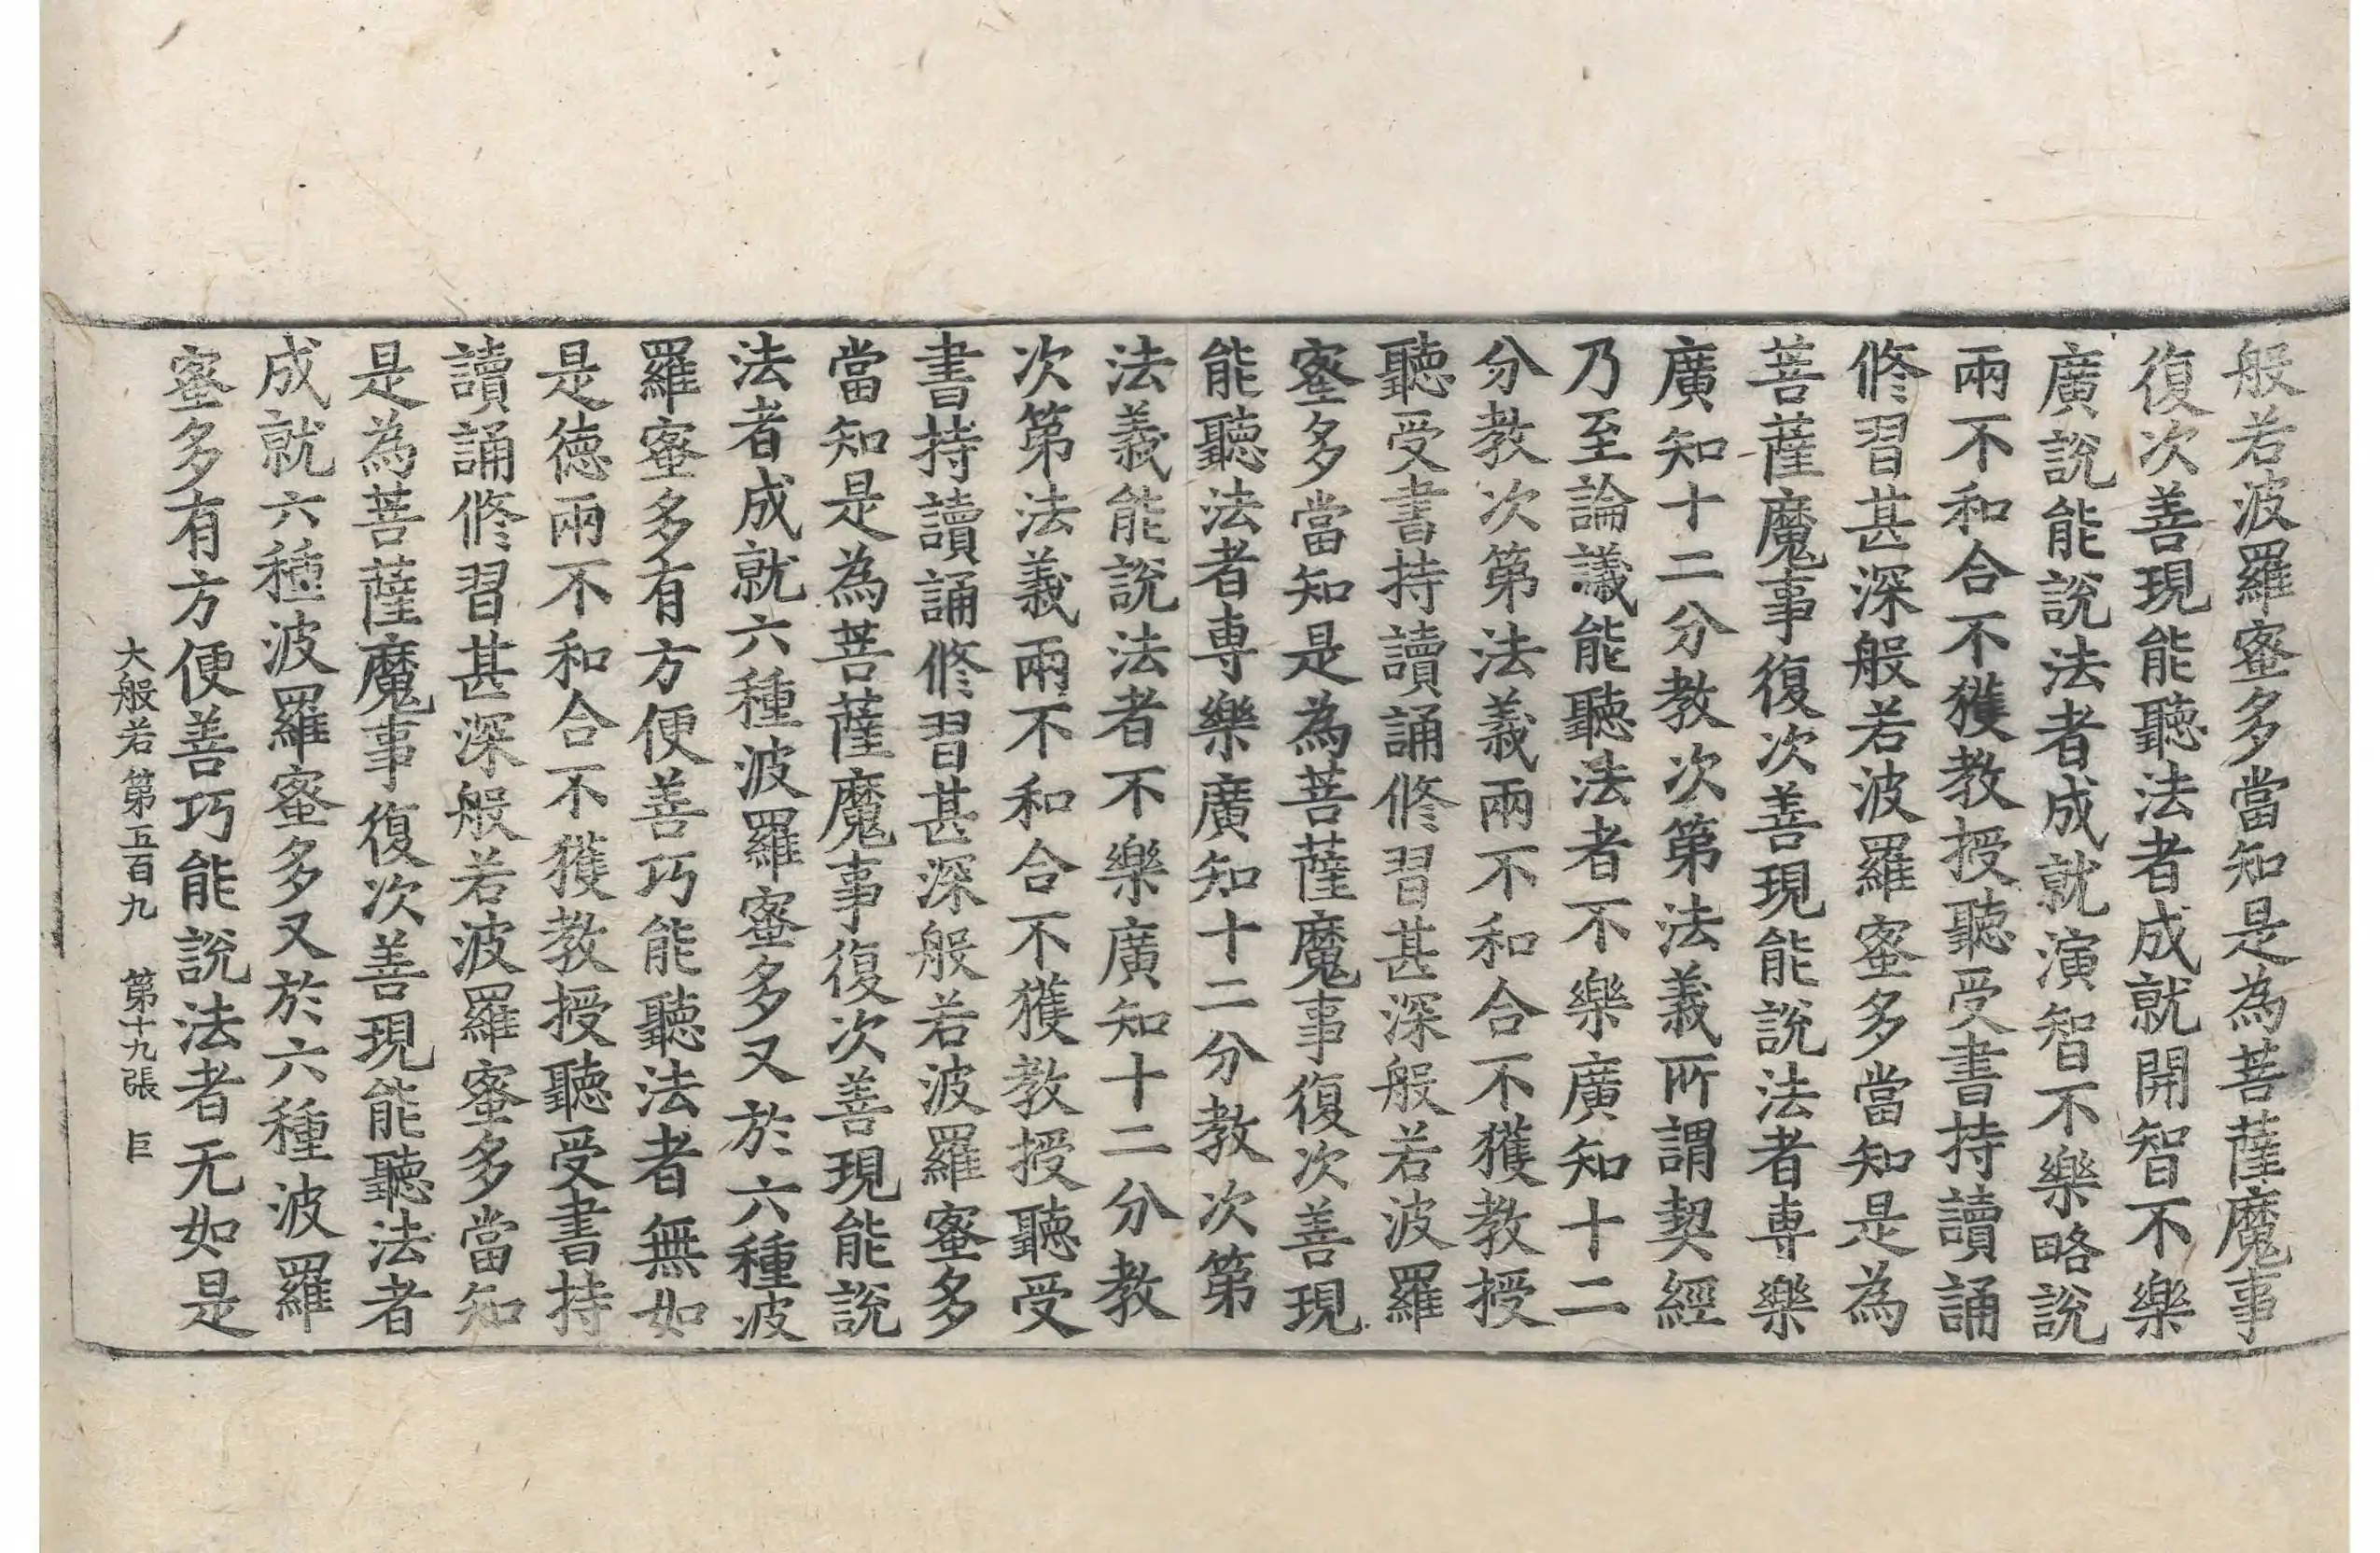 般若波羅蜜多當知是為菩薩魔事
復次善現能聽法者成就開智不樂
廣說能說法者成就演智不樂略說
兩不和合不獲教授聽受書持讀誦
修習甚深般若波羅蜜多當知是為
菩薩魔事復次善現能說法者專樂
廣知十二分教次第法義所謂契經
乃至論議能聽法者不樂廣知十二
分教次第法義兩不和合不獲教授
聽受書持讀誦修習甚深般若波羅
蜜多當知是為菩薩魔事復次善現
能聽法者專樂廣知十二分教次第
法義能說法者不樂廣知十二分教
次第法義兩不和合不獲教授聽受
書持讀誦修習甚深般若波羅蜜多
當知是為菩薩魔事復次善現能說
法者成就六種波羅蜜多又於六種波
羅蜜多有方便善巧能聽法者無如
是德兩不和合不獲教授聽受書持
讀誦修習甚深般若波羅蜜多當知
是為菩薩魔事復次善現能聽法者
成就六種波羅蜜多又於六種波羅
蜜多有方便善巧能說法者无如是
大般若第五百九 第十九張 巨